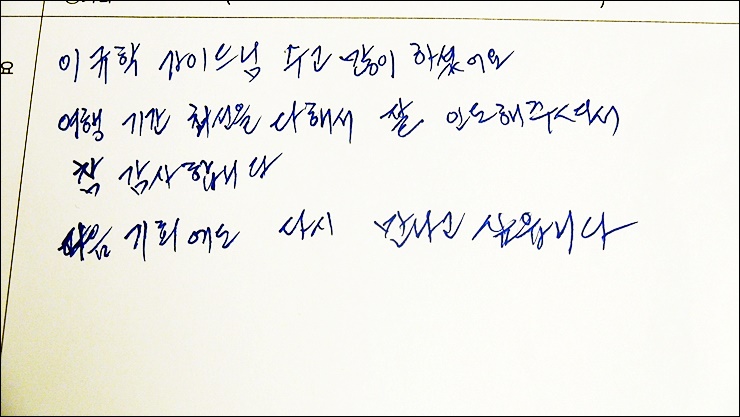 이규학 가이드님 수고 많이 하셨어요
여행 기간 최선을 다해서 잘 인도해주셔서
참 감사합니다
다음 기회에도 다시 만나고 싶습니다